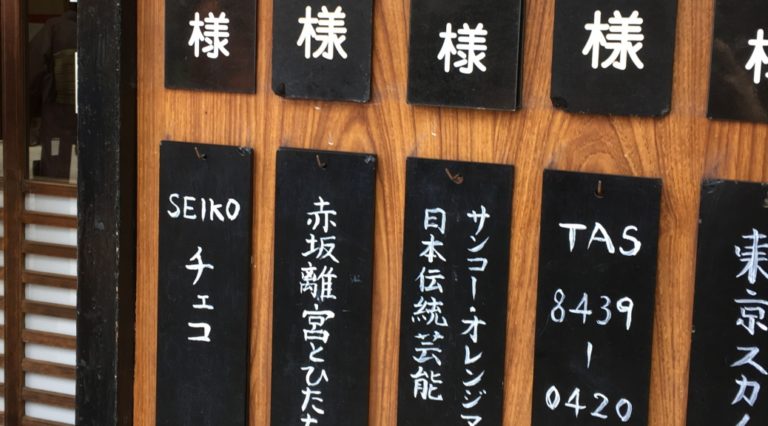 様
様
様
様
SEIKO
チェコ
赤坂離宮とひたち
サンコー・オレンジマ
日本伝統芸能
TAS
8439
-
0420
東京スカイ